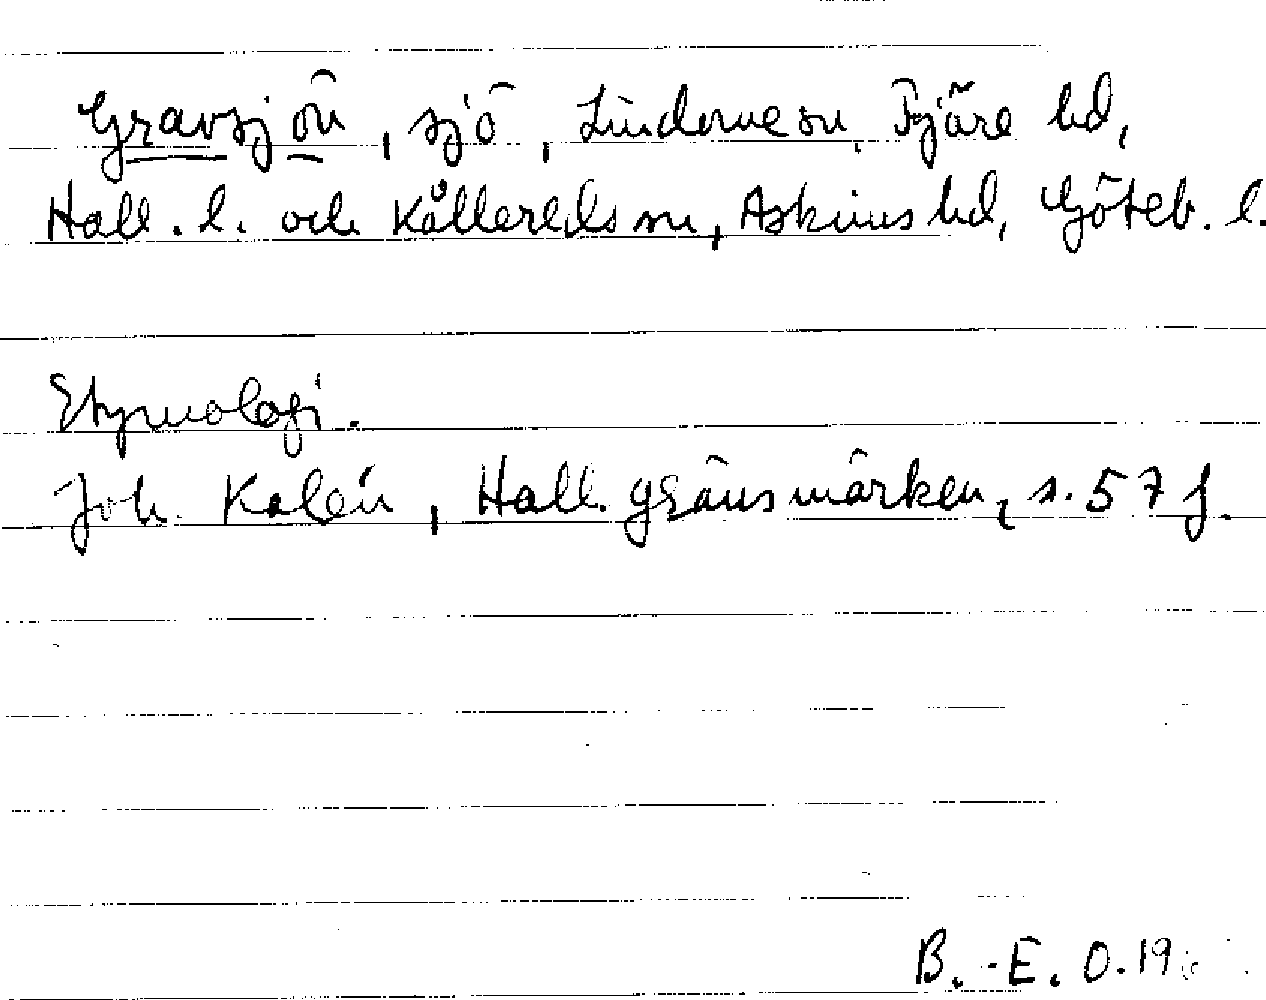 Gravsjön, sjö, Lindome sn, Fjäre hd,
Hall. l. och Kållereds sn, Askims hd, Göteb. l.
Etymologi.
Joh. Kalén, Hall. gränsmärken, s. 57 f.
B.-E. O. 19